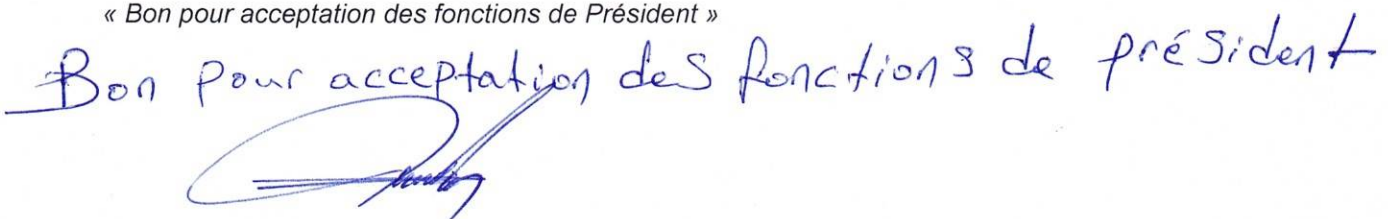 « Bon pour acceptation des fonctions de Président »
Bon pour acceptation des fonctions de président